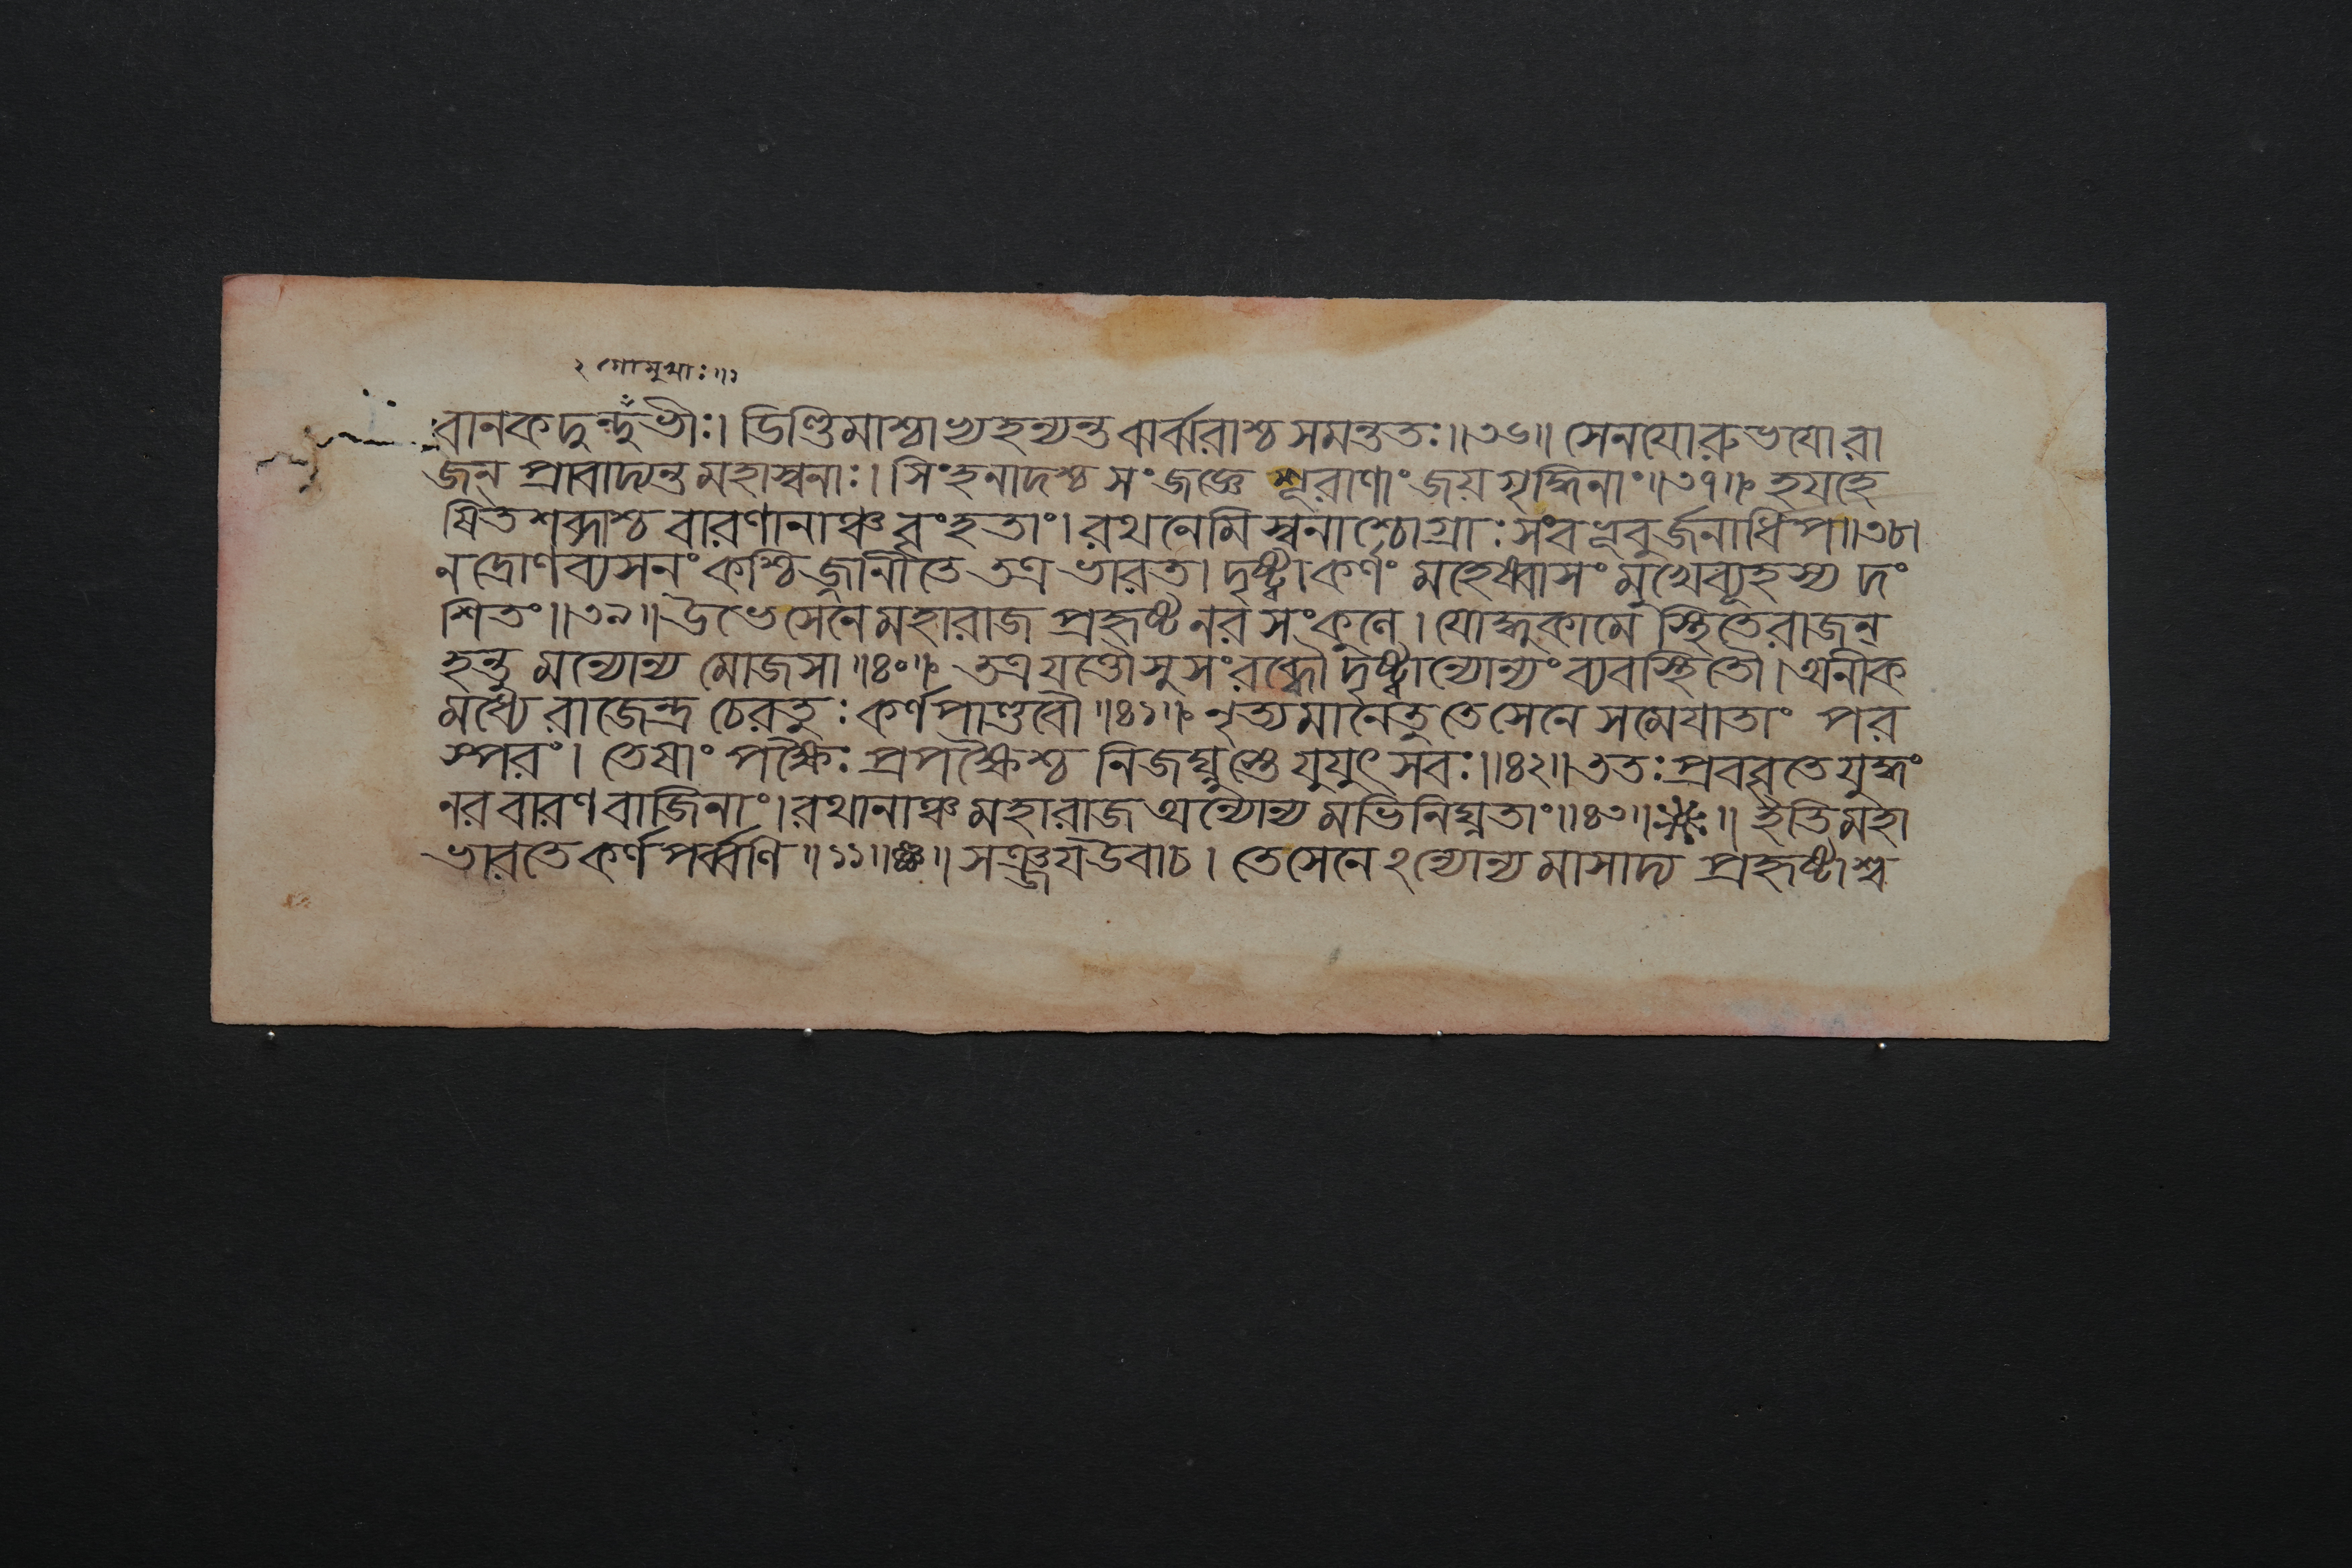 ২ গোমুখাঃ॥১
বানকদুন্দুভীঃ। ডিণ্ডিমাশ্চাপ্যহন্যন্ত ঝর্ঝরাশ্চ সমন্ততঃ॥৩৬॥ সেনযোরুভযোরা
জন্ প্রাবাদ্যন্ত মহাস্বনাঃ। সিংহনাদশ্চ সংজজ্ঞে শূরাণাং জয়গৃদ্ধিনাং॥৩৭॥ হযহে
ষিতশব্দাশ্চ বারণানাঞ্চ বৃংহতাং। রথনেমিস্বনাশ্চোগ্রাঃ সংবভূবুর্জনাধিপ॥৩৮।
ন দ্রোণব্যসনং কশ্চিজ্জানীতে তত্র ভারত। দৃষ্ট্বা কর্ণং মহেষ্বাসং মুখে ব্যূহস্য দং
শিতং॥৩৯॥ উভে সেনে মহারাজ প্রহৃষ্টনরসংকুলে। যোদ্ধুকামে স্থিতে রাজন্
হন্তুমন্যোন্যমোজসা॥৪০॥ তত্র যত্তৌ সুসংরব্ধৌ দৃষ্ট্বান্যোন্যং ব্যবস্থিতৌ। অনীক
মধ্যে রাজেন্দ্র চেরতুঃ কর্ণপাণ্ডবৌ॥৪১॥ নৃত্যমানে তু তে সেনে সমেযাতাং পর
স্পরং। তেষাং পক্ষৈঃ প্রপক্ষৈশ্চ নিজঘ্নুস্তে যুযুৎসবঃ॥৪২॥ ততঃ প্রববৃতে যুদ্ধং
নরবারণবাজিনাং। রথানাঞ্চ মহারাজ অন্যোন্যমভিনিঘ্নতাং॥৪৩॥ ॥ ইতি মহা
ভারতে কর্ণপর্ব্বণি॥১১॥ ॥ সঞ্জযউবাচ। তে সেনে ঽন্যোন্যমাসাদ্য প্রহৃষ্টাশ্ব